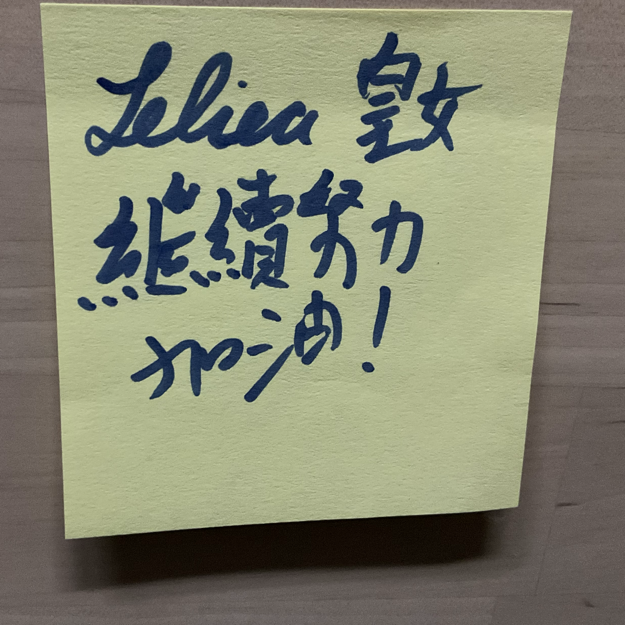 Leliea 皇女
繼續努力
加油！